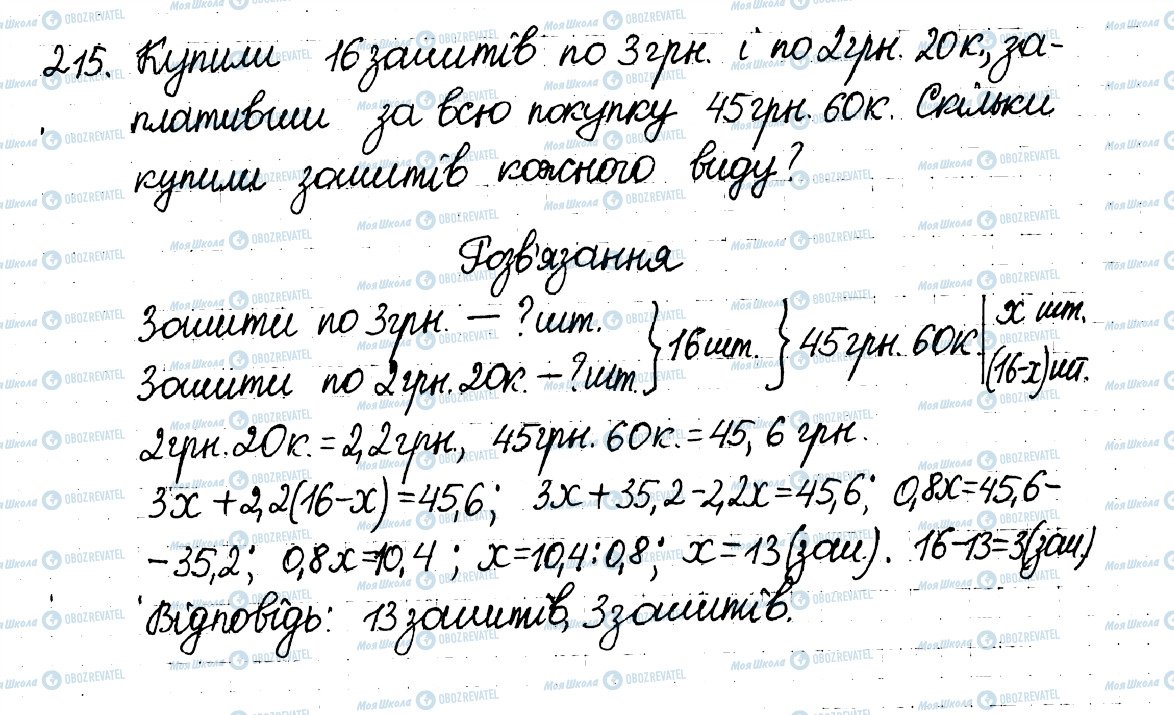 215. Купили 16 зошитів по 3 грн. і по 2 грн. 20 к., за-
плативши за всю покупку 45 грн. 60 к. Скільки
купили зошитів кожного виду?
Розв'язання
Зошити по 3 грн. — ? шт. } 16 шт. } 45 грн. 60 к. | x шт.
Зошити по 2 грн. 20 к. – ? шт. (16-x) шт.
2 грн. 20 к. = 2,2 грн., 45 грн. 60 к. = 45,6 грн.
3x + 2,2(16-x) = 45,6; 3x + 35,2 - 2,2x = 45,6; 0,8x = 45,6 -
- 35,2; 0,8x = 10,4; x = 10,4 : 0,8; x = 13 (зош). 16-13=3(зош)
Відповідь: 13 зошитів, 3 зошитів.
МояШкола OBOZREVATEL